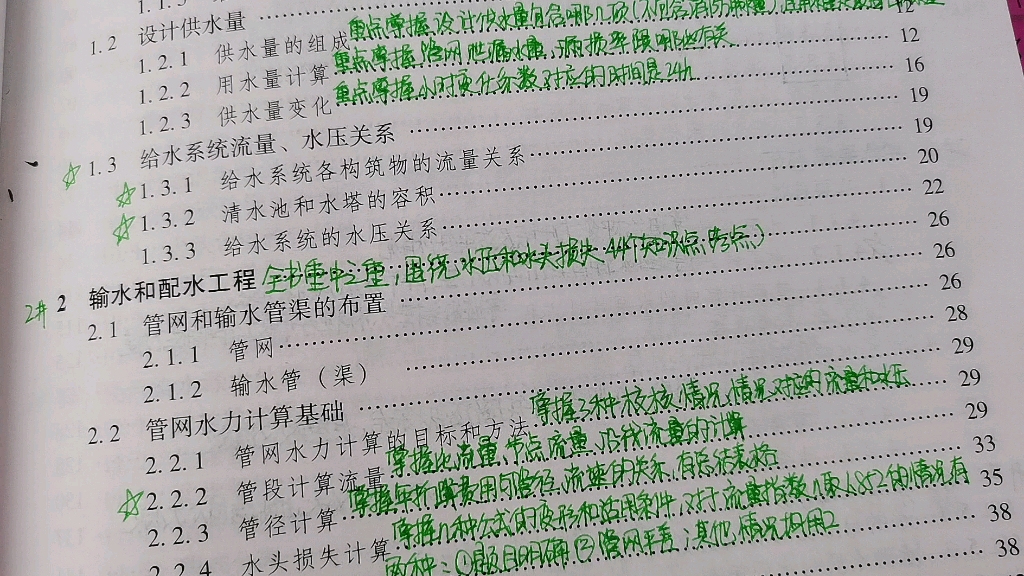 1.2 设计供水量
1.2.1 供水量的组成 重点掌握设计供水量包含哪几项(不包含消防用量) 12
1.2.2 用水量计算 重点掌握管网泄漏水量,漏损率跟哪些有关 12
1.2.3 供水量变化 重点掌握小时变化系数对应的时间是24h 16
☆1.3 给水系统流量、水压关系 19
☆1.3.1 给水系统各构筑物的流量关系 19
☆1.3.2 清水池和水塔的容积 20
1.3.3 给水系统的水压关系 22
2# 2 输水和配水工程 全书重中之重,围绕水压和水头损失 44个知识点 考点) 26
2.1 管网和输水管渠的布置 26
2.1.1 管网 26
2.1.2 输水管(渠) 28
2.2 管网水力计算基础 29
2.2.1 管网水力计算的目标和方法 掌握3种校核情况,情况对应的流量和水压 29
☆2.2.2 管段计算流量 掌握比流量,节点流量,沿线流量的计算 29
2.2.3 管径计算 掌握年折算费用与管径、流速的关系,有总结表格 33
2.2.4 水头损失计算 掌握几种公式的变形和适用条件,对于流量指数n取1.852的情况有 35
两种:①题目明确②管网平差;其他情况均用2 38
38